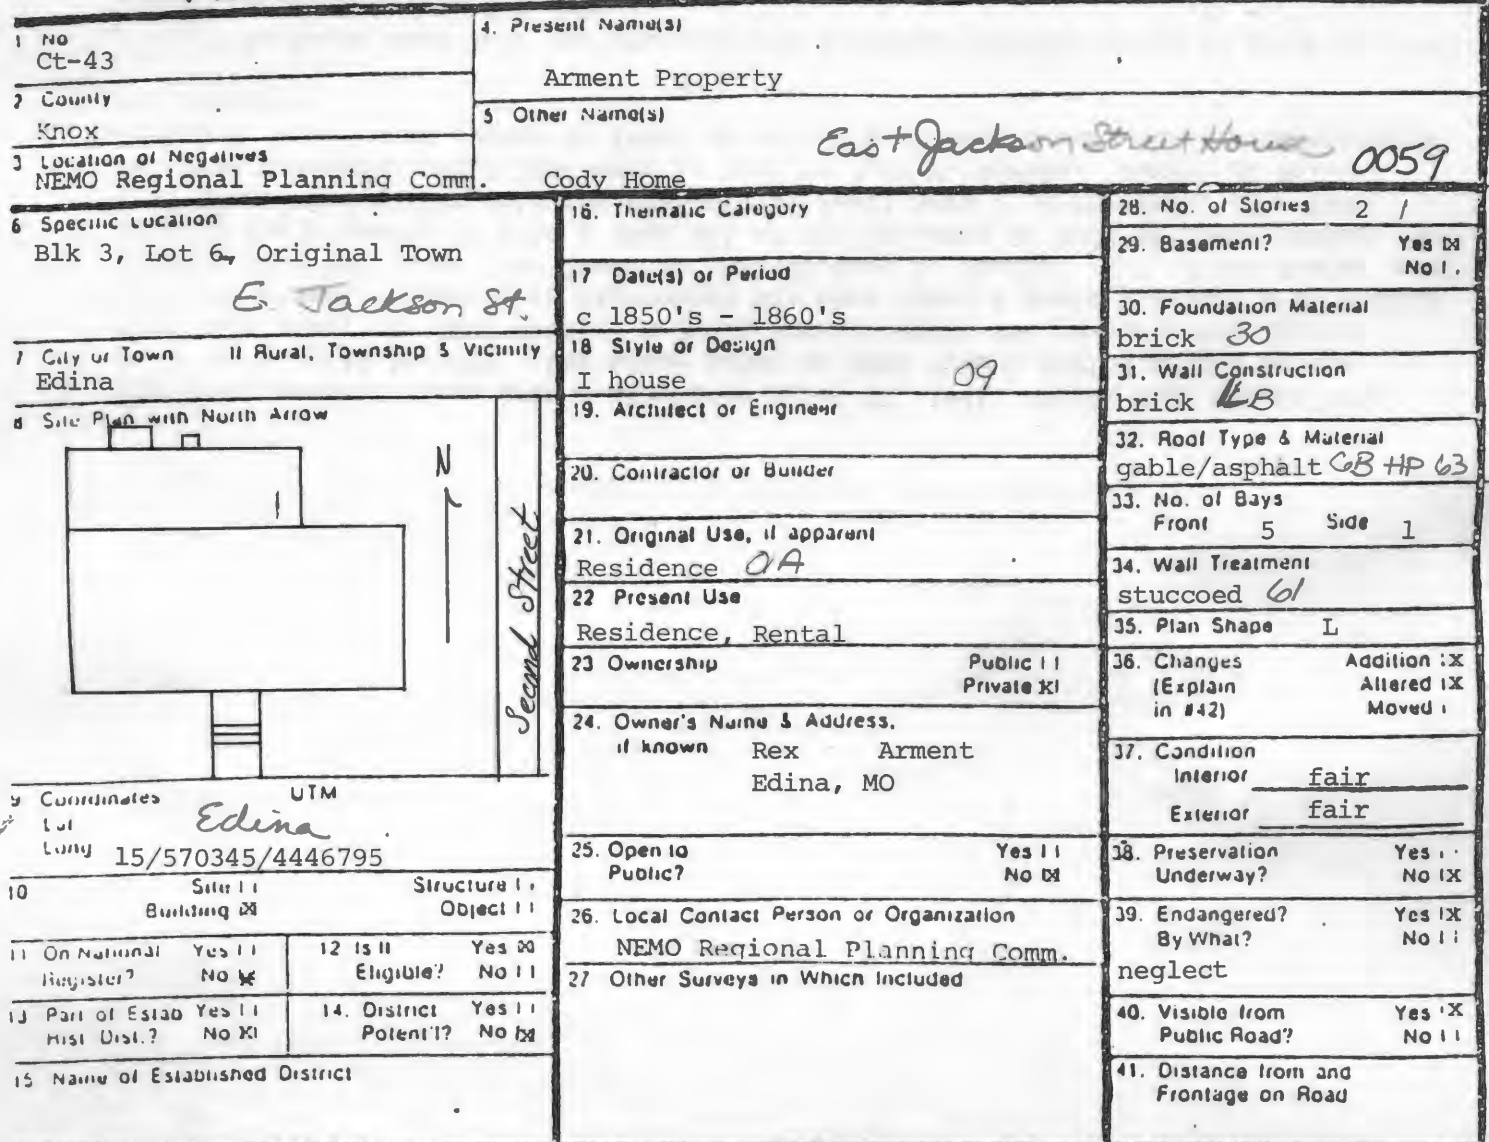 1 No
Ct-43
2 County
Knox
3 Location of Negatives
NEMO Regional Planning Comm.
4. Present Name(s)
Arment Property
5 Other Name(s)
East Jackson Street House 0059
Cody Home
6 Specific Location
Blk 3, Lot 6, Original Town
E. Jackson St.
7 City or Town If Rural, Township & Vicinity
Edina
8 Site Plan with North Arrow
N
Second Street
9 Coordinates UTM
Lat
Long
Edina
15/570345/4446795
10 Site Structure
Building [X] Object
11 On National Register? Yes No X
12 Is It Eligible? Yes [X] No
13 Part of Estab Hist Dist.? Yes No X
14. District Potent'l? Yes No [X]
15 Name of Established District
16. Thematic Category
17 Date(s) or Period
c 1850's - 1860's
18 Style or Design
I house 09
19. Architect or Engineer
20. Contractor or Builder
21. Original Use, if apparent
Residence 01A
22 Present Use
Residence, Rental
23 Ownership Public
Private X
24. Owner's Name & Address,
if known Rex Arment
Edina, MO
25. Open to Yes
Public? No [X]
26. Local Contact Person or Organization
NEMO Regional Planning Comm.
27 Other Surveys in Which Included
28. No. of Stories 2 /
29. Basement? Yes [X]
No
30. Foundation Material
brick 30
31. Wall Construction
brick B
32. Roof Type & Material
gable/asphalt GB HP 63
33. No. of Bays
Front 5 Side 1
34. Wall Treatment
stuccoed 61
35. Plan Shape L
36. Changes Addition X
(Explain Altered X
in #42) Moved
37. Condition
Interior fair
Exterior fair
38. Preservation Yes
Underway? No X
39. Endangered? Yes X
By What? No
neglect
40. Visible from Yes X
Public Road? No
41. Distance from and
Frontage on Road